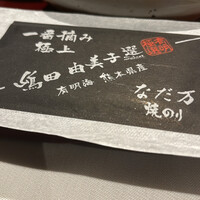 一番摘み
極上
島田 由美子 選
Select
有明海 熊本県産
なだ万
焼のり